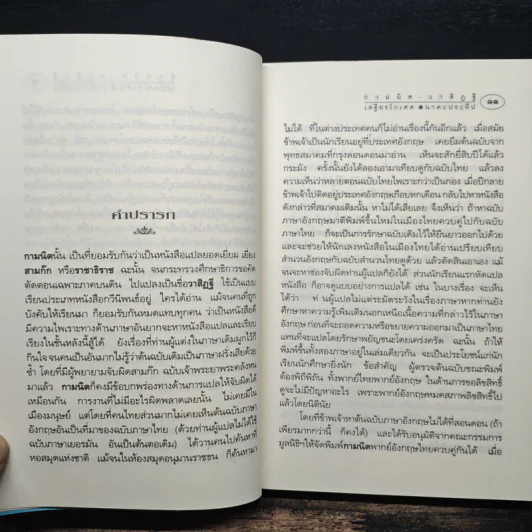 คำปรารภ
กามนิตนั้น เป็นที่ยอมรับกันว่าเป็นหนังสือแปลยอดเยี่ยม เยี่ยง
สามก๊ก หรือราชาธิราช ฉะนั้น จนกระทรวงศึกษาธิการขอคัด
ตัดตอนเฉพาะภาคบนดิน ไปแปลงเป็นชื่อวาสิฏฐี ใช้เป็นแบบ
เรียนประเภทหนังสือกวีนิพนธ์อยู่ ใครได้อ่าน แม้จนคนที่ถูก
บังคับให้เรียนมา ก็ยอมรับกันหมดแทบทุกคน ว่าเป็นหนังสือดี
มีความไพเราะทางด้านภาษาอันยากจะหาหนังสือแปลและเรียบ
เรียงในชั้นหลังนี้สู้ได้ ยังเรื่องที่ท่านผู้แต่งในภาษาเดิมผูกไว้ก็
กินใจจนคนเป็นอันมากไม่รู้ว่าต้นฉบับเดิมเป็นภาษาฝรั่งเสียด้วย
ซ้ำ โดยที่มีผู้พยายามจับผิดสามก๊ก ฉบับเจ้าพระยาพระคลังหน
มาแล้ว กามนิตก็คงมีข้อบกพร่องทางด้านการแปลให้จับผิดได้
เหมือนกัน การงานที่ไม่มีอะไรผิดพลาดเลยนั้น ไม่เคยมีใน
เมืองมนุษย์ แต่โดยที่คนไทยส่วนมากไม่เคยเห็นต้นฉบับภาษา
อังกฤษอันเป็นที่มาของฉบับภาษาไทย (ด้วยท่านผู้แปลไม่ได้ใช้
ฉบับภาษาเยอรมัน อันเป็นต้นตอเดิม) ได้วานคนไปค้นหาที่
หอสมุดแห่งชาติ แม้จนในห้องสมุดอนุมานราชธน ก็ค้นหามา
กามนิต-วาสิฏฐี
เสฐียรโกเศศ นาคะประทีป ๑๑
ไม่ได้ ที่ในต่างประเทศคนก็ไม่อ่านเรื่องนี้กันอีกแล้ว เมื่อสมัย
ข้าพเจ้าเป็นนักเรียนอยู่ที่ประเทศอังกฤษ เคยยืมต้นฉบับจาก
พุทธสมาคมที่กรุงลอนดอนมาอ่าน เห็นจะสักยี่สิบปีได้แล้ว
กระมัง ครั้งนั้นยังได้ลองเอามาเทียบดูกับฉบับไทย แล้วลง
ความเห็นว่าหลายตอนฉบับไทยไพเราะกว่าเป็นกอง เมื่อปีกลาย
ข้าพเจ้าไปติดอยู่ประเทศอังกฤษเกือบหกเดือน กลับไปหาหนังสือ
ดังกล่าวที่สมาคมเดิมนั้น หาไม่ได้เสียเลย จึงเห็นว่า ถ้าหาฉบับ
ภาษาอังกฤษมาตีพิมพ์ขึ้นใหม่ในเมืองไทยควบคู่ไปกับฉบับ
ภาษาไทย ก็จะเป็นการรักษาฉบับเดิมไว้ให้ยืนยาวออกไปด้วย
และจะช่วยให้นักเลงหนังสือในเมืองไทยได้อ่านเปรียบเทียบ
สำนวนอังกฤษกับฉบับสำนวนไทยดูด้วย แล้วตัดสินเอาเอง แม้
จนจะหาช่องจับผิดท่านผู้แปลก็ยังได้ ส่วนนักเรียนแรกหัดแปล
หนังสือ ก็อาจดูแบบอย่างการแปลได้ เช่น ในบางเรื่อง จะเห็น
ได้ว่า ท่านผู้แปลไม่แต่ระมัดระวังในเรื่องภาษา หากท่านยัง
ศึกษาหาความรู้เพิ่มเติมนอกเหนือเนื้อความที่กล่าวไว้ในภาษา
อังกฤษ ก่อนที่จะถอดความหรือขยายความออกมาเป็นภาษาไทย
แทนที่จะแปลโดยรักษาพยัญชนะโดยเคร่งครัด ฉะนั้น ถ้าให้
พิมพ์ขึ้นทั้งสองภาษาอยู่ในเล่มเดียวกัน จะเป็นประโยชน์แก่นัก
เรียนนักศึกษายิ่งนัก ข้อสำคัญ ผู้ตรวจต้นฉบับขณะพิมพ์
ต้องพิถีพิถัน ทั้งพากย์ไทยพากย์อังกฤษ ในด้านการขอลิขสิทธิ์
ดูจะไม่มีปัญหาอะไร เพราะพากย์อังกฤษหมดสภาพลิขสิทธิ์ไป
แล้วโดยนิตินัย
โดยที่ข้าพเจ้าหาต้นฉบับภาษาอังกฤษไม่ได้ที่ลอนดอน (ถ้า
เพียรมากกว่านี้ ก็คงได้) และได้รับอนุมัติจากคณะกรรมการ
มูลนิธิฯ ให้จัดพิมพ์กามนิตพากย์อังกฤษไทยควบคู่กันได้ เมื่อ